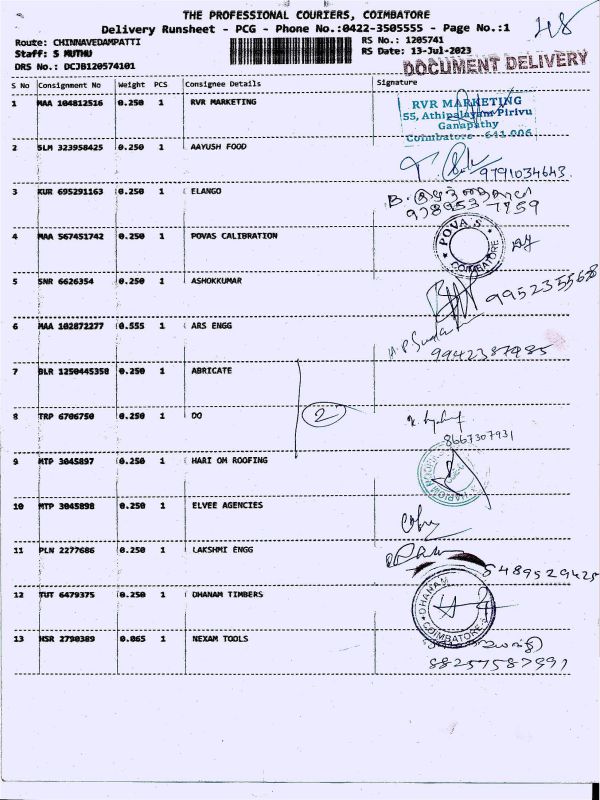 THE PROFESSIONAL COURIERS, COIMBATORE
Delivery Runsheet - PCG - Phone No.:0422-3505555 - Page No.:1
48
Route: CHINNAVEDAMPATTI
RS No.: 1205741
Staff: S MUTHU
RS Date: 13-Jul-2023
DRS No.: DCJB120574101
DOCUMENT DELIVERY
S No Consignment No Weight PCS Consignee Details Signature
1 MAA 104812516 0.250 1 RVR MARKETING
RVR MARKETING
55, Athipalayam Pirivu
Ganapathy
Coimbatore - 641 006
2 SLM 323958425 0.250 1 AAYUSH FOOD
9791034643
3 KUR 695291163 0.250 1 ELANGO
B.
4 MAA 567451742 0.250 1 POVAS CALIBRATION
POVAS
COIMBATORE
5 SNR 6626354 0.250 1 ASHOKKUMAR
9952355628
6 MAA 102872277 0.555 1 ARS ENGG
9942387485
7 BLR 1250445358 0.250 1 ABRICATE
2
8 TRP 6706750 0.250 1 DO
8667307931
9 MTP 3045897 0.250 1 HARI OM ROOFING
10 MTP 3045898 0.250 1 ELVEE AGENCIES
11 PLN 2277686 0.250 1 LAKSHMI ENGG
5489529425
12 TUT 6479375 0.250 1 DHANAM TIMBERS
DHANAM
COIMBATORE
13 HSR 2790389 0.065 1 NEXAM TOOLS
88257587991